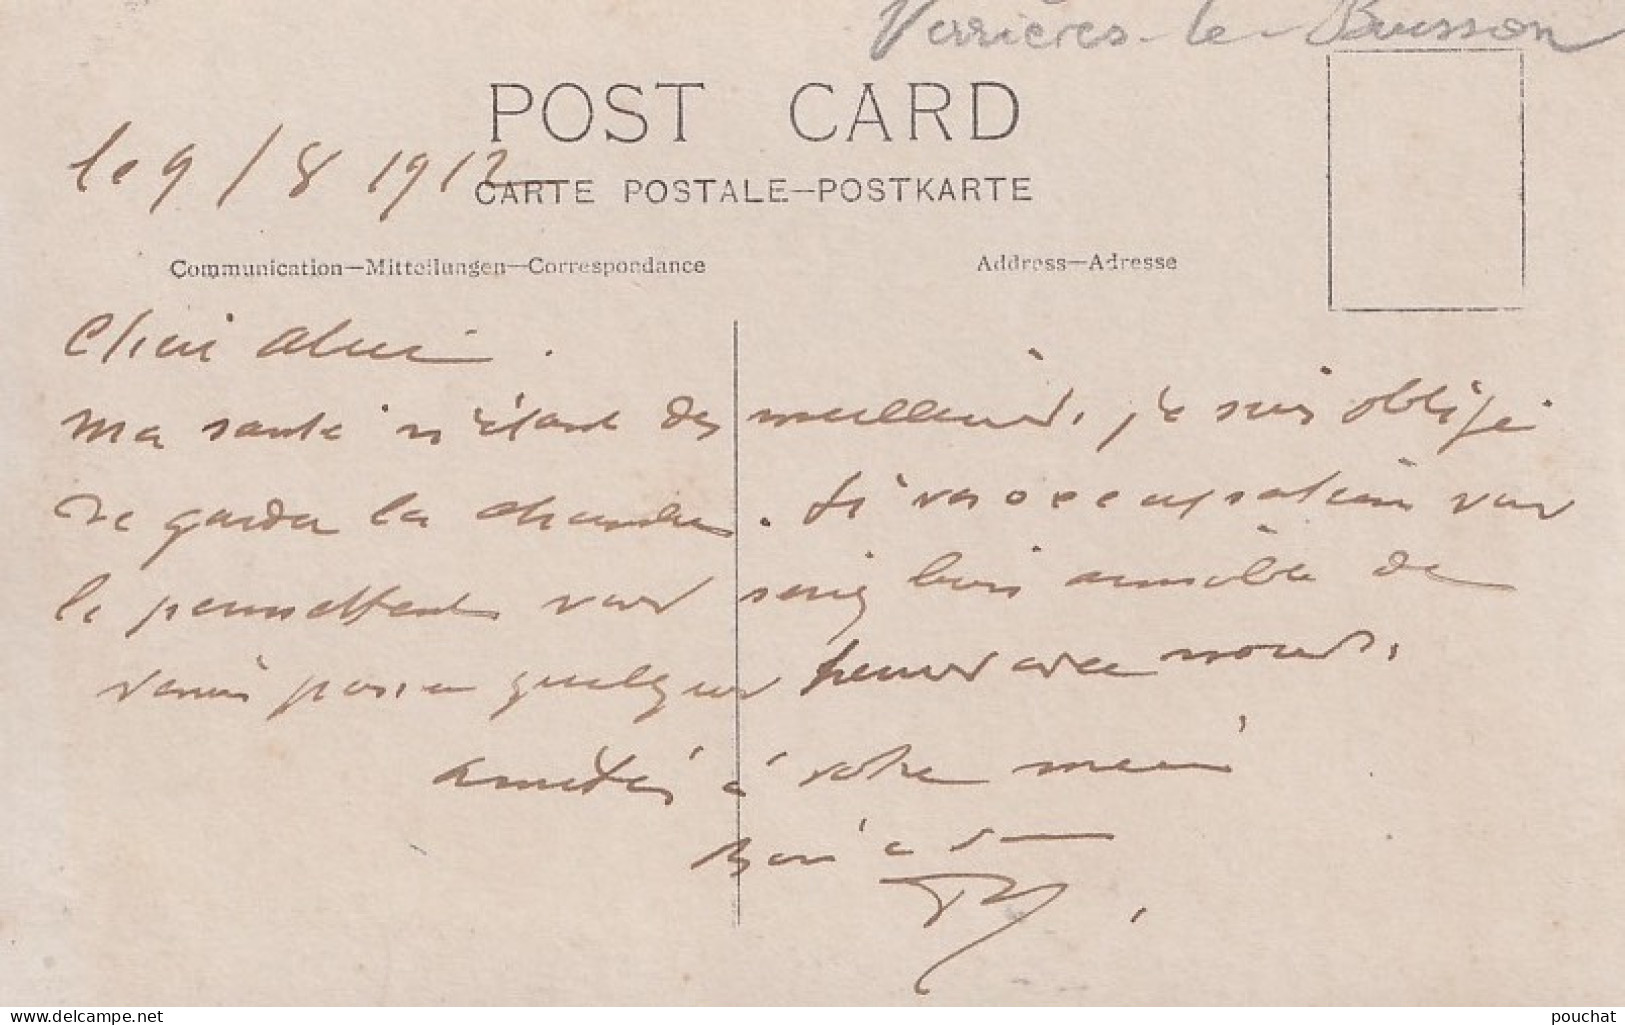 Verrières-le-Buisson
POST CARD
le 9/8 1912
CARTE POSTALE—POSTKARTE
Communication—Mitteilungen—Correspondance
Address—Adresse
Ma santé n'étant des meilleures, je suis obligé
de garder la chambre. Si vos occupations vous
le permettent vous seriez bien aimable de
venir passer quelques heures avec nous.
Amitiés à votre
www.delcampe.net
pouchat